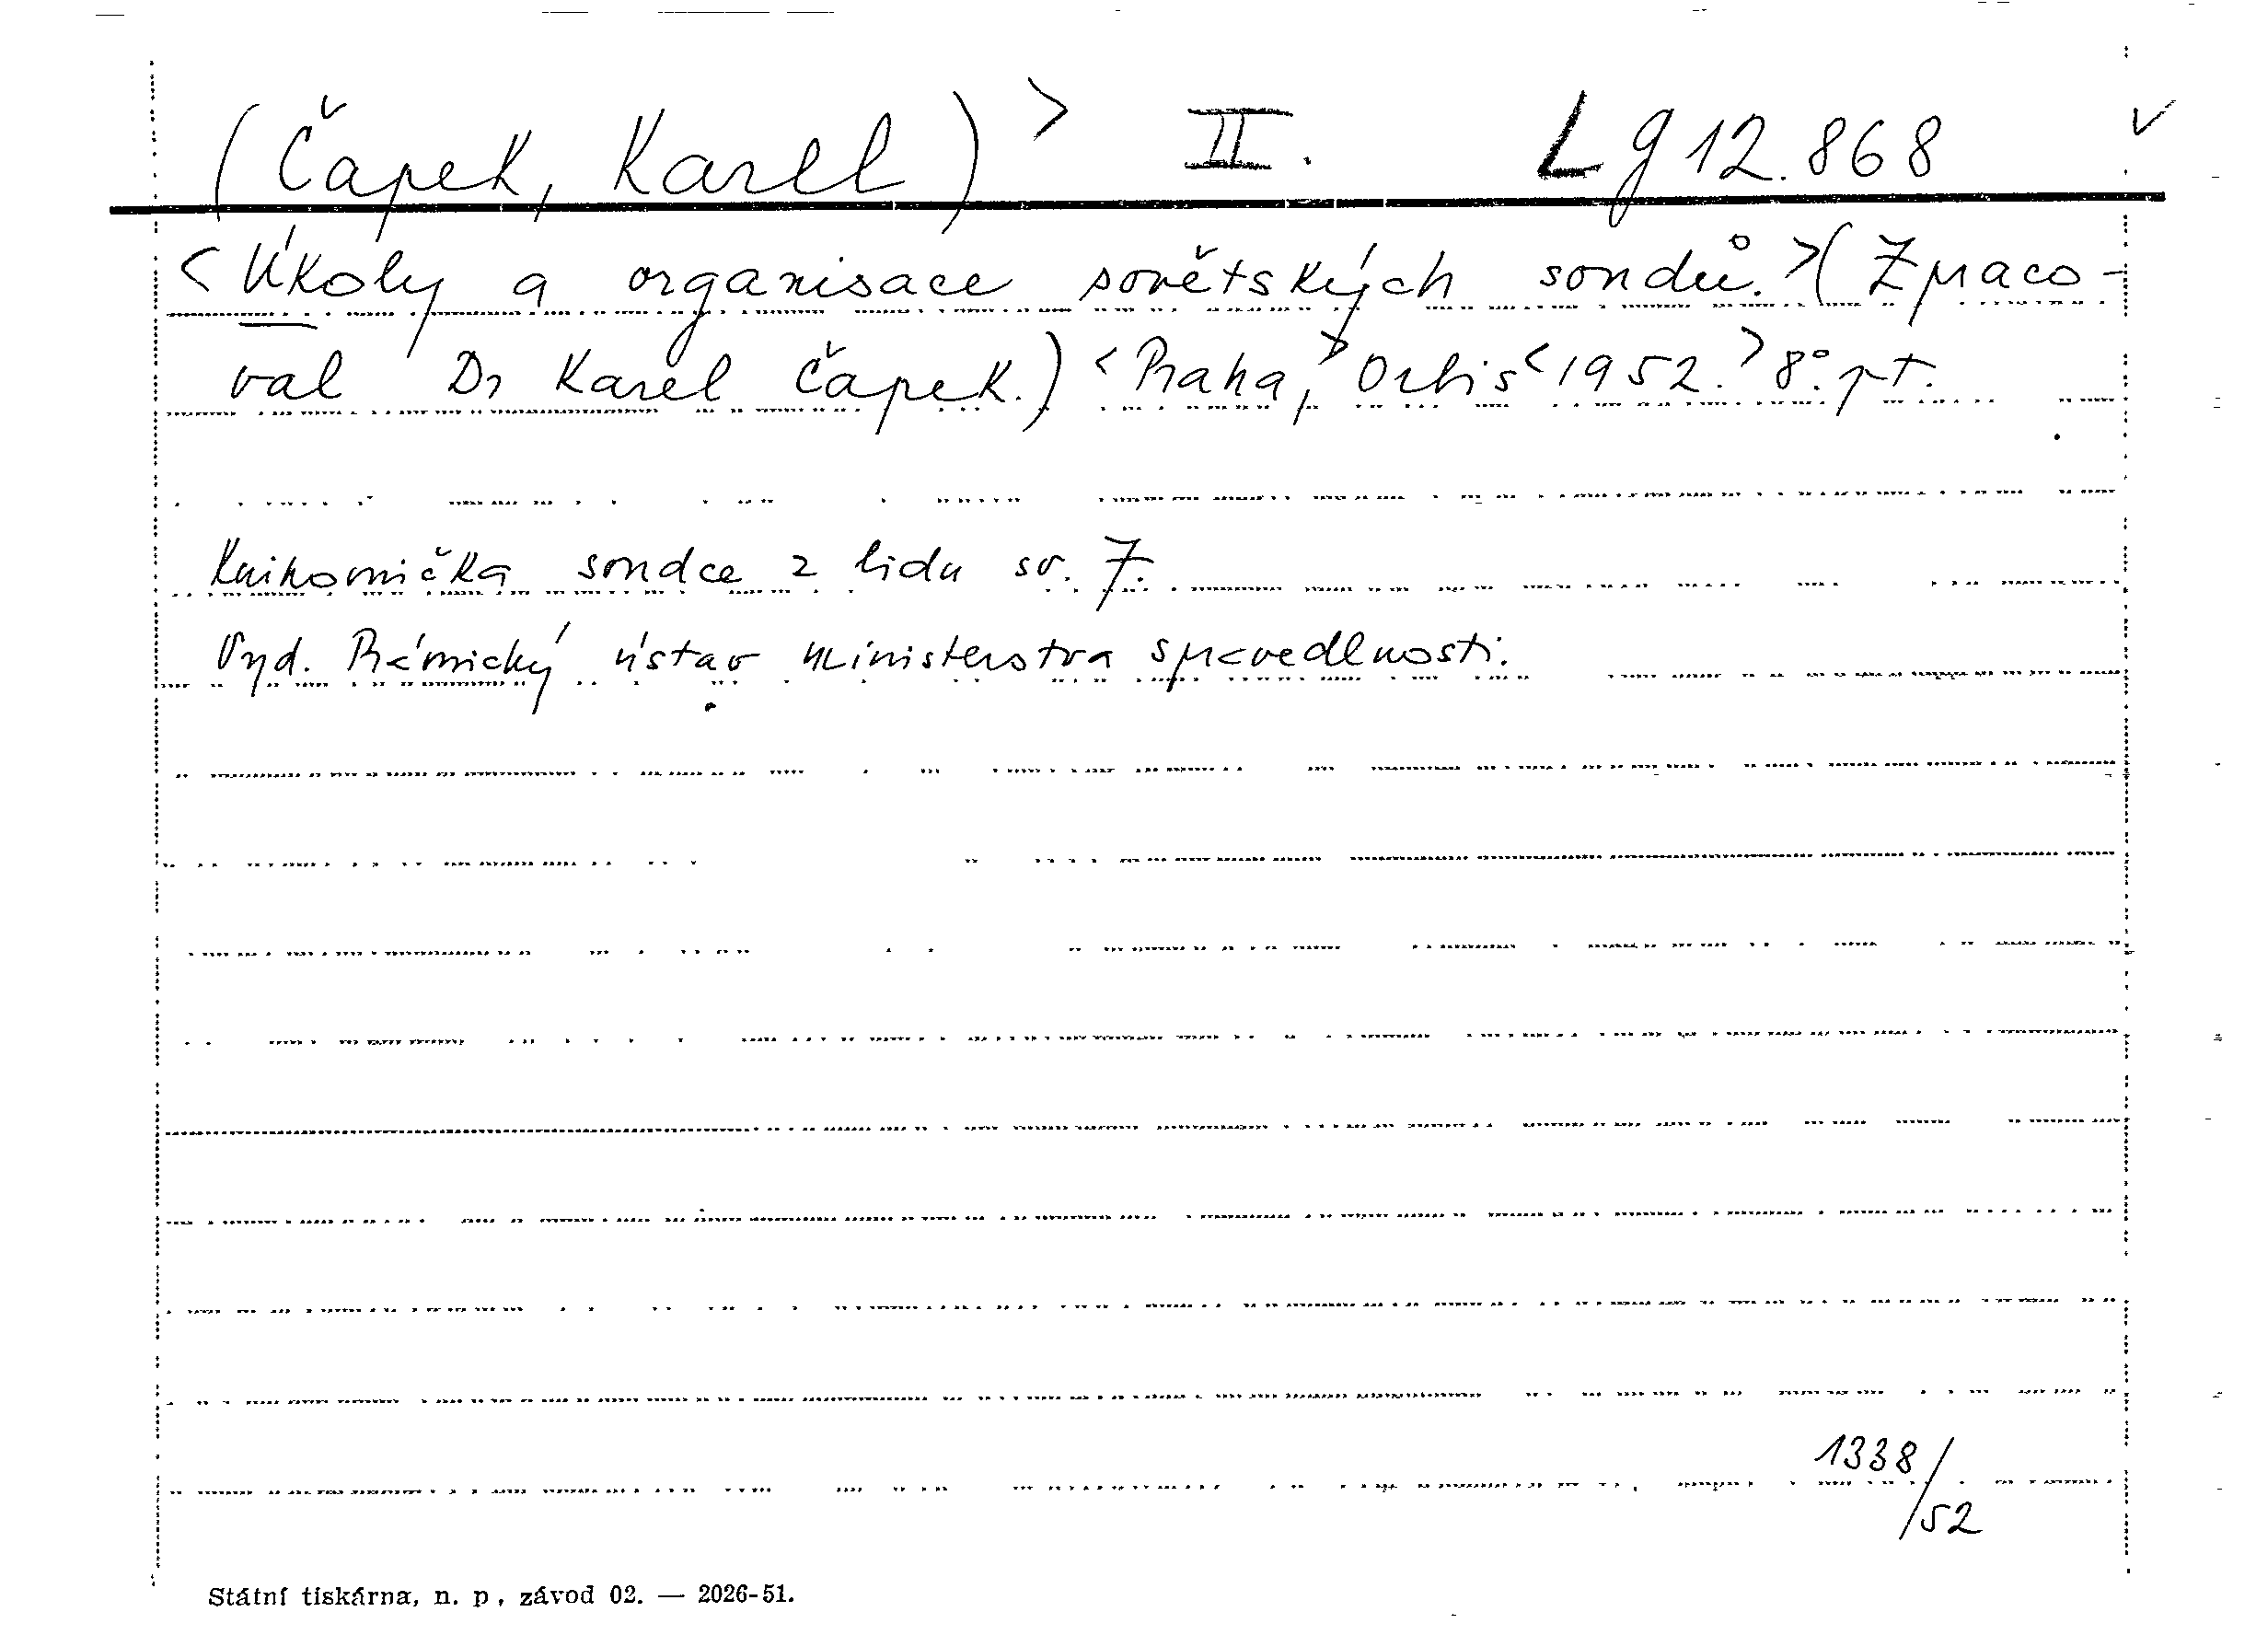 (Čapek, Karel)> II. Lg 12.868
<Úkoly a organisace sovětských soudů.>(Zpraco-
val Dr Karel Čapek.) <Praha,> Orbis <1952.> 8°. pt.
Knihovnička soudce z lidu sv. 7.
Vyd. Právnický ústav ministerstva spravedlnosti.
1338/52
Státní tiskárna, n. p., závod 02. — 2026-51.